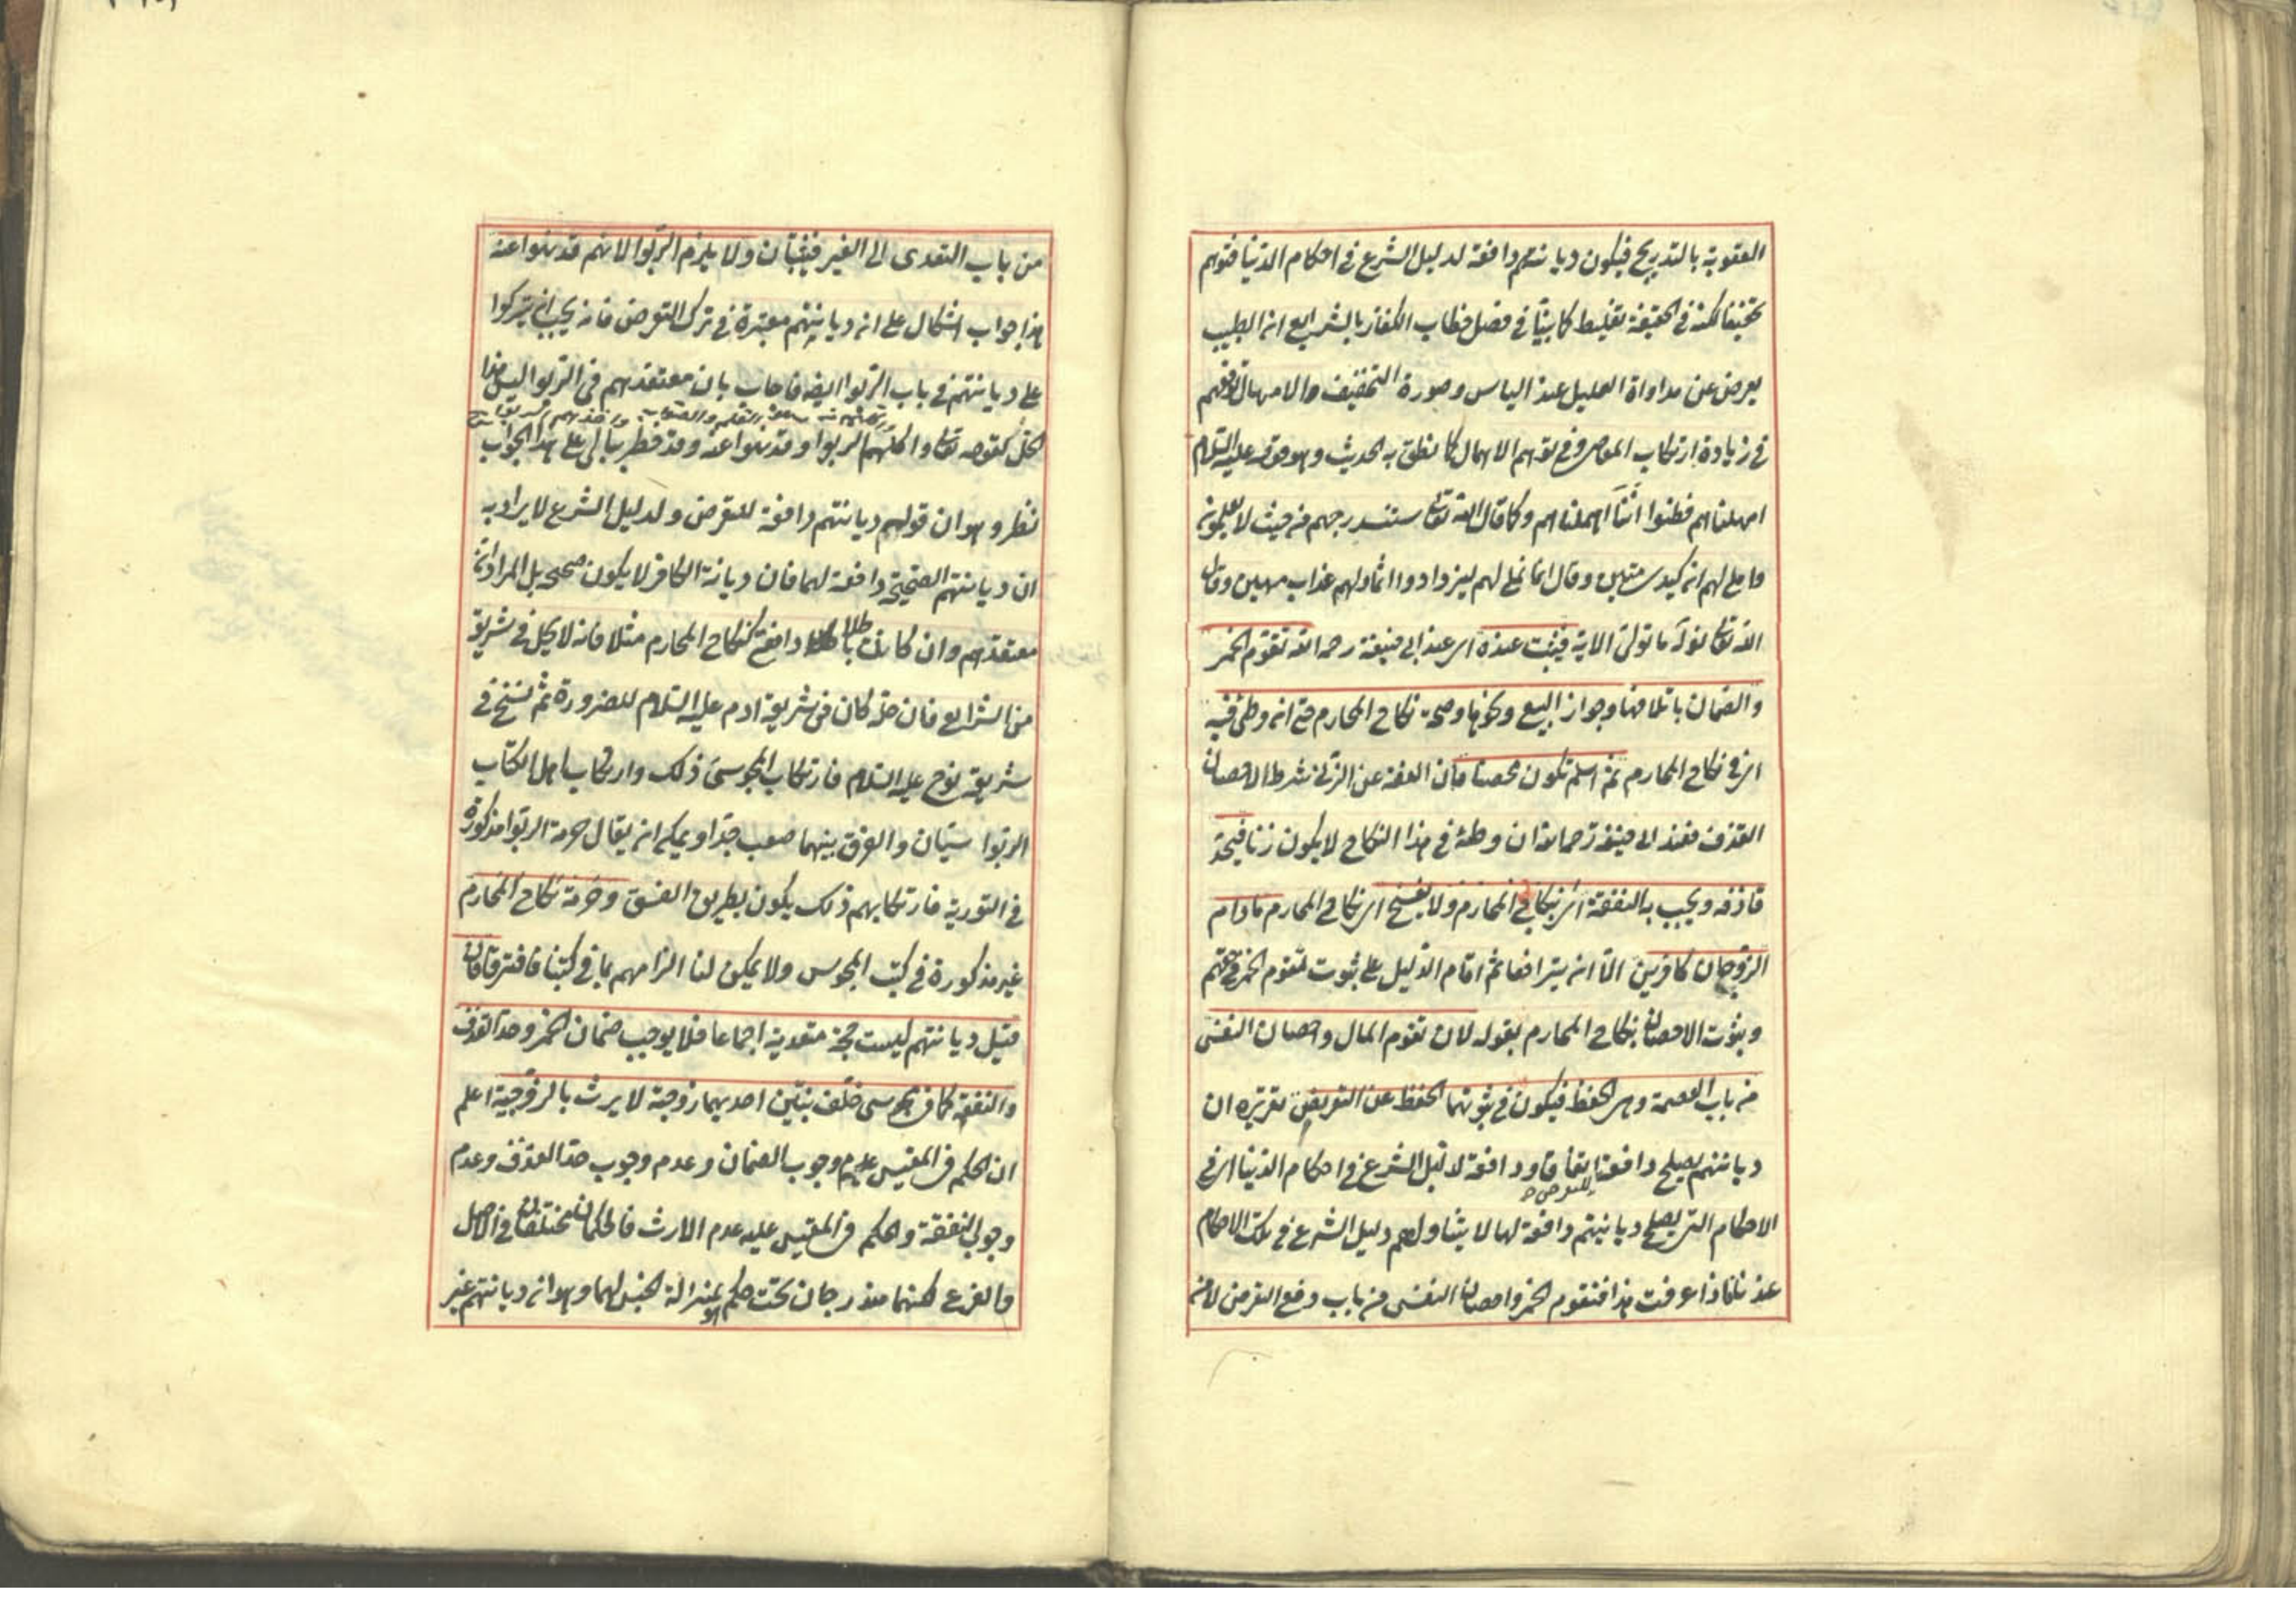 العقوبة بالتدريج فيكون ديانتهم دافعة لدليل الشرع فى احكام الدنيا فتوهم
تخفيفا لكنه فى الحقيقة تغليظ كما بينا فى فصل خطاب الكفار بالشرايع ان الطبيب
يعرض عن مداواة العليل عند الياس وصورة التخفيف والامهال توقعهم
فى زيادة ارتكاب المعاصى وفى توهم الاهمال كما نطق به الحديث وهو قوله عليه السلام
امهلناهم فظنوا اننا اهملناهم وكما قال الله تعا سنستدرجهم من حيث لا يعلمون
واملى لهم ان كيدى متين وقال انما نملى لهم ليزدادوا اثما ولهم عذاب مهين وقال
الله تعا نوله ما تولى الاية فيثبت عنده اى عند ابى حنيفة رحمه الله تقوم الخمر
والضمان باتلافها وجواز البيع ونحوها وصحة نكاح المحارم حتى ان وطئ فيه
اى فى نكاح المحارم ثم اسلم تكون محصنا فان العفة عن الزنى شرط الاحصان
القذف فعند ابى حنيفة رحمه الله ان وطئه فى هذا النكاح لا يكون زنا فيحد
قاذفه ويجب به النفقة اى بنكاح المحارم ولا يفسخ اى نكاح المحارم مادام
الزوجان كافرين الا ان يترافعا ثم اقام الدليل على ثبوت تقوم الخمر فى حقهم
وبثوت الاحصان بنكاح المحارم بقوله لان تقوم المال واحصان النفس
من باب العصمة وهى الحفظ فيكون فى ثبوتهما الحفظ عن التعرض تقريره ان
ديانتهم يصلح دافعة للتعرض اتفاقا ودافعة لدليل الشرع فى احكام الدنيا اى فى
الاحكام التى يصلح ديانتهم دافعة لها لا يتناولهم دليل الشرع فى تلك الاحكام
عندنا فاذا عرفت هذا فتقوم الخمر واحصان النفس من باب دفع التعرض لا من
من باب التعدى الى الغير فيثبتان ولا يلزم الربوا لانهم قد نهوا عنه
هذا جواب اشكال على ان ديانتهم معتبرة فى ترك التعرض فانه يجب ان يتركوا
على ديانتهم فى باب الربوا ايضه فاجاب بان معتقدهم فى الربوا ليس هذا
الحل كقوله تعا واكلهم الربوا وقد نهوا عنه وقد خطر ببالى على هذا الجواب
نظر وهو ان قولهم ديانتهم دافعة للتعرض ولدليل الشرع لا يراد به
ان ديانتهم الصحيحة دافعة لهما فان ديانة الكافر لا يكون صحيحه بل المراد ان
معتقدهم وان كان باطلا دافع كنكاح المحارم مثلا فانه لا يحل فى شريعة
من الشرايع فان حله كان فى شريعة ادم عليه السلام للضرورة ثم نسخ فى
شريعة نوح عليه السلام فارتكاب المجوسى ذلك وارتكاب اهل الكتاب
الربوا سيان والفرق بينهما صعب جدا ويمكن ان يقال حرمة الربوا مذكورة
فى التورية فارتكابهم ذلك يكون بطريق الفسق وحرمة نكاح المحارم
غير مذكورة فى كتب المجوس ولا يمكن لنا الزامهم بما فى كتبنا فافترقا فان
قيل ديانتهم ليست حجة متعدية اجماعا فلا يوجب ضمان الخمر وحد القذف
والنفقة كما فى مجوسى خلف بنتين احديهما زوجة لا يرث بالزوجية اعلم
ان الحكم فى المقيس عدم وجوب الضمان وعدم وجوب حد القذف وعدم
وجوب النفقة والحكم فى المقيس عليه عدم الارث فالحكمان مختلفان فى الاصل
والفرع لكنهما مندرجان تحت حكم هو بمنزلة الجنس لهما وهو ان ديانتهم غير